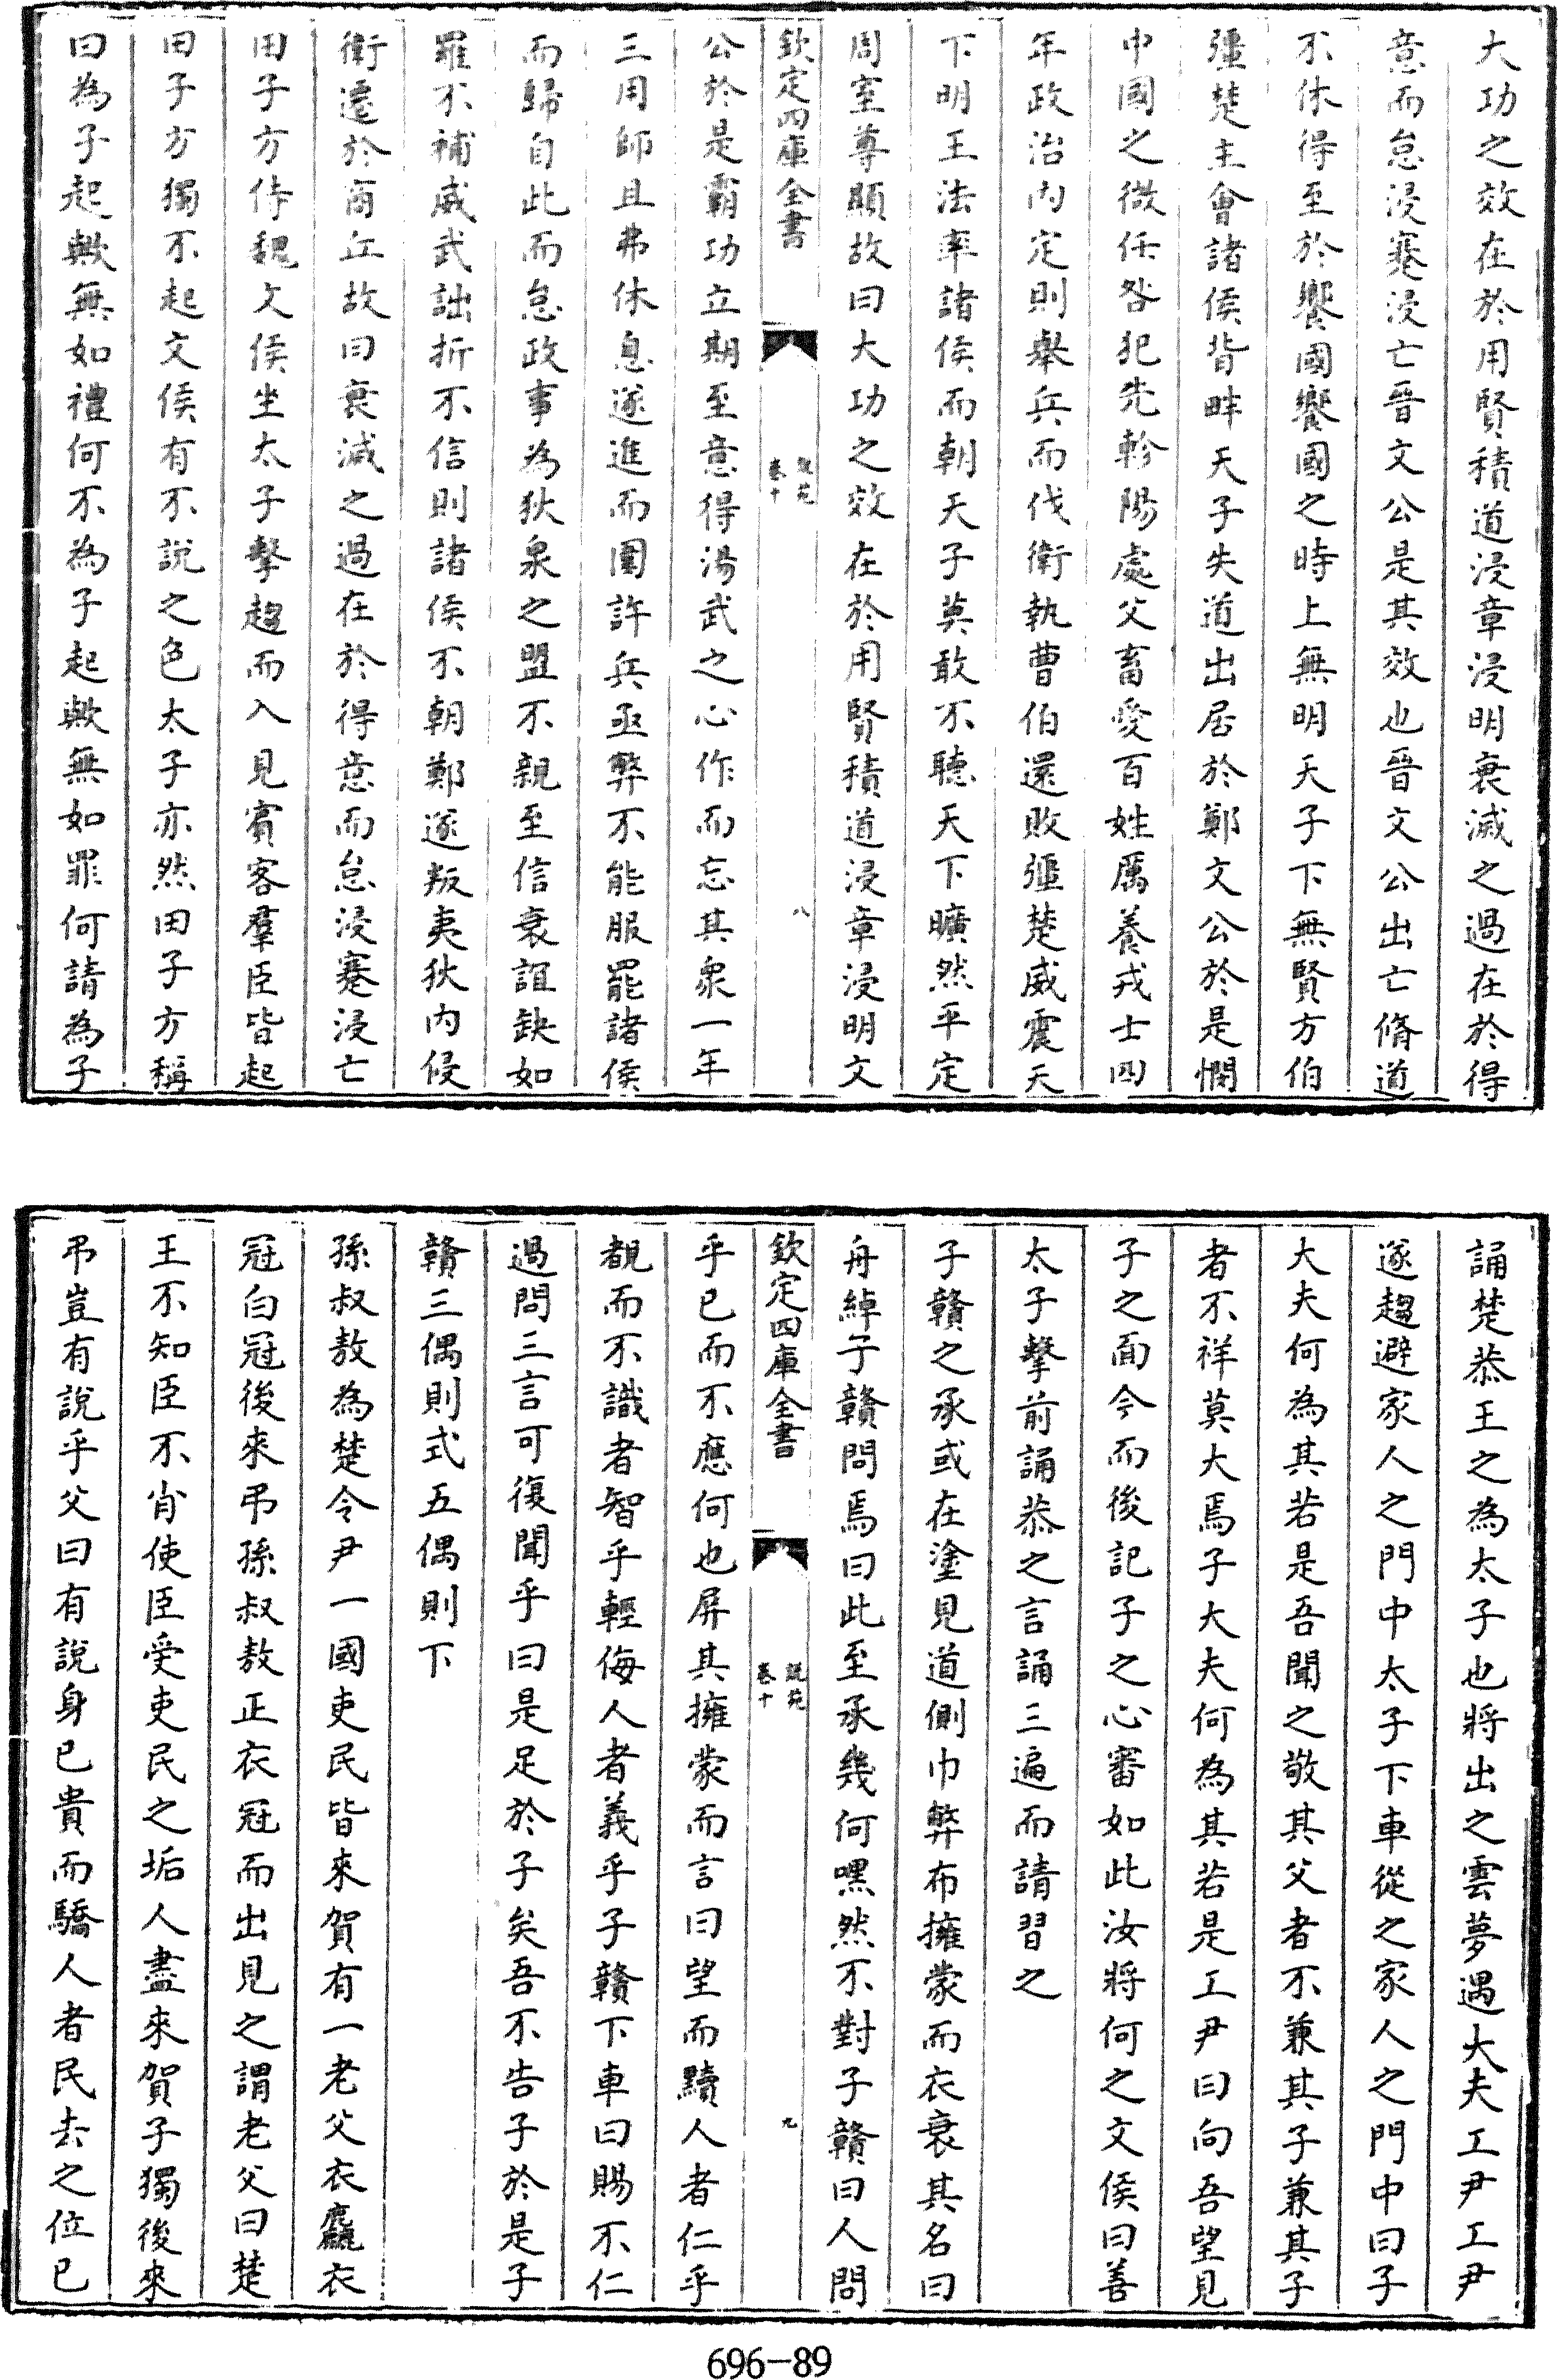 大功之效在於用賢積道浸章浸明衰滅之過在於得
意而怠浸蹇浸亡晉文公是其效也晉文公出亡脩道
不休得至於饗國饗國之時上無明天子下無賢方伯
彊楚主會諸侯背畔天子失道出居於鄭文公於是憫
中國之微任咎犯先軫陽處父畜愛百姓厲養戎士四
年政治內定則舉兵而伐衛執曹伯還敗彊楚威震天
下明王法率諸侯而朝天子莫敢不聽天下曠然平定
周室尊顯故曰大功之效在於用賢積道浸章浸明文
欽定四庫全書
說苑
卷十
八
公於是霸功立期至意得湯武之心作而忘其衆一年
三用師且弗休息遂進而圍許兵亟弊不能服罷諸侯
而歸自此而怠政事為狄泉之盟不親至信衰誼缺如
羅不補威武詘折不信則諸侯不朝鄭遂叛夷狄內侵
衛遷於商丘故曰衰滅之過在於得意而怠浸蹇浸亡
田子方侍魏文侯坐太子擊趨而入見賓客羣臣皆起
田子方獨不起文侯有不說之色太子亦然田子方稱
曰為子起歟無如禮何不為子起歟無如罪何請為子
誦楚恭王之為太子也將出之雲夢遇大夫工尹工尹
遂趨避家人之門中太子下車從之家人之門中曰子
大夫何為其若是吾聞之敬其父者不兼其子兼其子
者不祥莫大焉子大夫何為其若是工尹曰向吾望見
子之面今而後記子之心審如此汝將何之文侯曰善
太子擊前誦恭之言誦三遍而請習之
子贛之承或在塗見道側巾弊布擁蒙而衣衰其名曰
舟綽子贛問焉曰此至承幾何嘿然不對子贛曰人問
欽定四庫全書
說苑
卷十
九
乎已而不應何也屏其擁蒙而言曰望而黷人者仁乎
覩而不識者智乎輕侮人者義乎子贛下車曰賜不仁
過問三言可復聞乎曰是足於子矣吾不告子於是子
贛三偶則式五偶則下
孫叔敖為楚令尹一國吏民皆來賀有一老父衣麤衣
冠白冠後來弔孫叔敖正衣冠而出見之謂老父曰楚
王不知臣不肖使臣受吏民之垢人盡來賀子獨後來
弔豈有說乎父曰有說身已貴而驕人者民去之位已
696-89